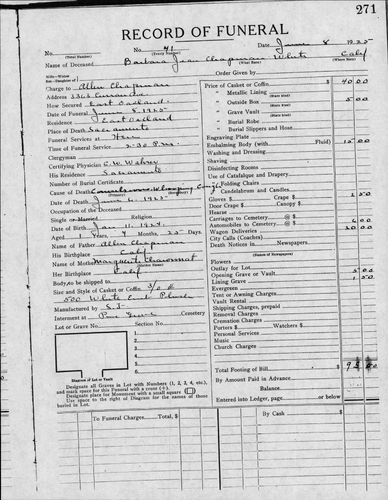 271
RECORD OF FUNERAL
No. No. 41 Date June 8 1925
(Total Number) (Yearly Number)
Name of Deceased Barbara Jean Chapman White Calif
(Where Born)
Charge to Allen Chapman
Order Given by
Address
How Secured East Oakland
Date of Funeral June 8, 1925
Residence East Oakland
Place of Death Sacramento
Funeral Services at Here
Time of Funeral Service 2:30 P.M.
Clergyman
Certifying Physician
His Residence Sacramento
Number of Burial Certificate
Cause of Death Whooping Cough
Date of Death June 6, 1925
Occupation of the Deceased
Single or Married Religion
Date of Birth Jan 11, 1924
Aged 1 Years, 4 Months, 25 Days
Name of Father Allen Chapman
His Birthplace Calif
Name of Mother Marguerite
Her Birthplace Calif
Body to be shipped to
Size and Style of Casket or Coffin 3/0
500 White Plush
Manufactured by
Interment at Cemetery
Lot or Grave No. Section No.
1.
2.
3.
4.
5.
6.
Diagram of Lot or Vault
Designate all Graves in Lot with Numbers (1, 2, 3, 4, etc.),
and mark space for this Funeral with a cross (+).
Designate place for Monument with a small square
Use space to right of Diagram for the names of those
buried in Lot.
Price of Casket or Coffin 40 00
" Metallic Lining
" Outside Box 5 00
" Grave Vault
" Burial Robe
" Burial Slippers and Hose
Engraving Plate
Embalming Body (with Fluid) 15 00
Washing and Dressing
Shaving
Disinfecting Rooms
Use of Catafalque and Drapery
" Folding Chairs
" Candelabrum and Candles
Gloves $ Crape $ 2 50
Door Crape $ Canopy $
Hearse
Carriages to Cemetery @ $
Automobiles to Cemetery @ $
Wagon Deliveries
City Calls (Coaches)
Death Notices in Newspapers
(Names of Newspapers)
Flowers
Outlay for Lot 5 00
Opening Grave or Vault
Lining Grave
Evergreen
Tent or Awning Charges
Vault Rental
Shipping Charges, prepaid
Removal Charges
Cremation Charges
Porters $ Watchers $
Personal Services
Music
Church Charges
Total Footing of Bill
By Amount Paid in Advance
Balance
Entered into Ledger, page or below
To Funeral Charges Total, $
By Cash $